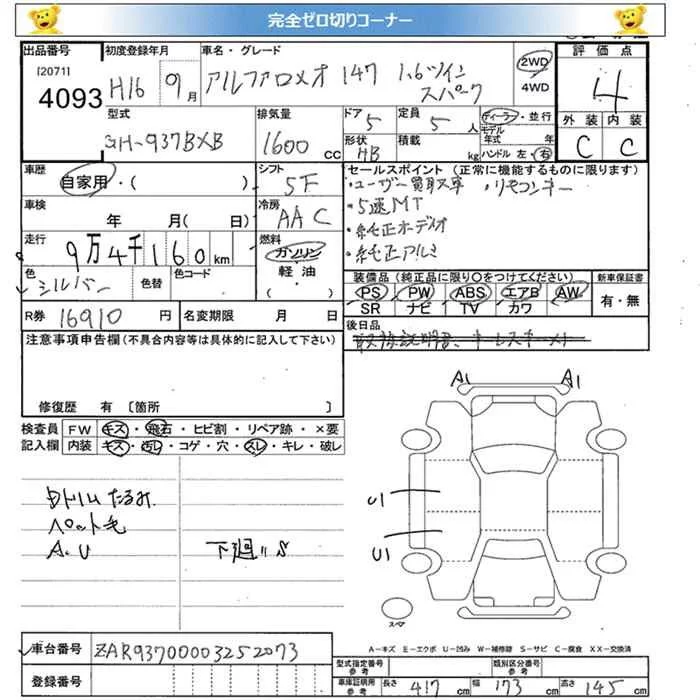 完全ゼロ切りコーナー
出品番号 初度登録年月 車名・グレード 評価点
[2071] 4093 H16 9月 アルファロメオ 147 1.6ツイン スパーク 2WD 4WD 4
型式 排気量 ドア 定員 ディーラー・並行 外装 内装
GH-937BXB 1600 CC 5 5人 モデル年式 年 C C
形状 HB 積載 kg ハンドル 左・右
車歴 シフト セールスポイント (正常に機能するものに限ります)
自家用・( ) 5F ・ユーザー買取車 ・リモコンキー
車検 冷房 ・5速MT
年 月(日) AAC ・純正ホーディオ
走行 燃料 ・純正アルミ
9万4千160km ガソリン・軽・油 ( )
色 色替 色コード 装備品(純正品に限り○をつけてください) 新車保証書
シルバー PS PW ABS エアB AW 有・無
SR ナビ TV カワ
R券 16910 円 名変期限 月 日 後日品
注意事項申告欄(不具合内容等は具体的に記入して下さい) 取扱説明書、キーレスキー
修復歴 有 〔箇所 〕
A1 A1
検査員 FW キズ・飛石・ヒビ割・リペア跡・×要
記入欄 内装 キズ・汚レ・コゲ・穴・スレ・キレ・破レ
Dトリムたるみ U1
ペット毛
A.U 下廻りS U1
スペア
A-キズ E-エクボ U-凹み W-補修跡 S-サビ C-腐食 XX-交換済
車台番号 ZAR93700003252073
型式指定番号 参考 類別区分番号 参考
登録番号 車庫証明用 参考 長さ 417 cm 幅 173 cm 高さ 145 cm